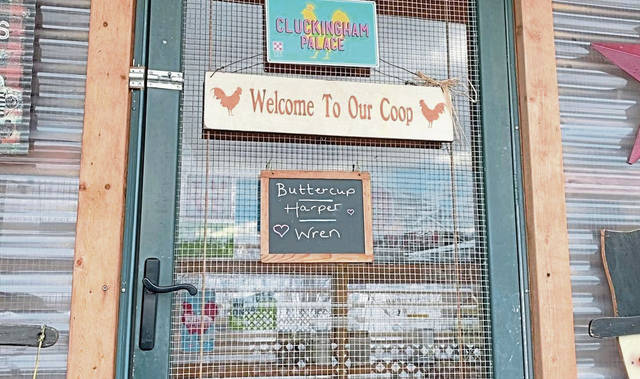 CLUCKINGHAM
PALACE
Welcome To Our Coop
Buttercup
Harper
Wren